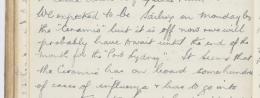 We expected to be sailing on Monday by
the "Ceramic" but it is off now & we will
probably have to wait until the end of the
month for the "Port Sydney". It seems that
the Ceramic has on board some hundreds
of cases of influenza & has to go into